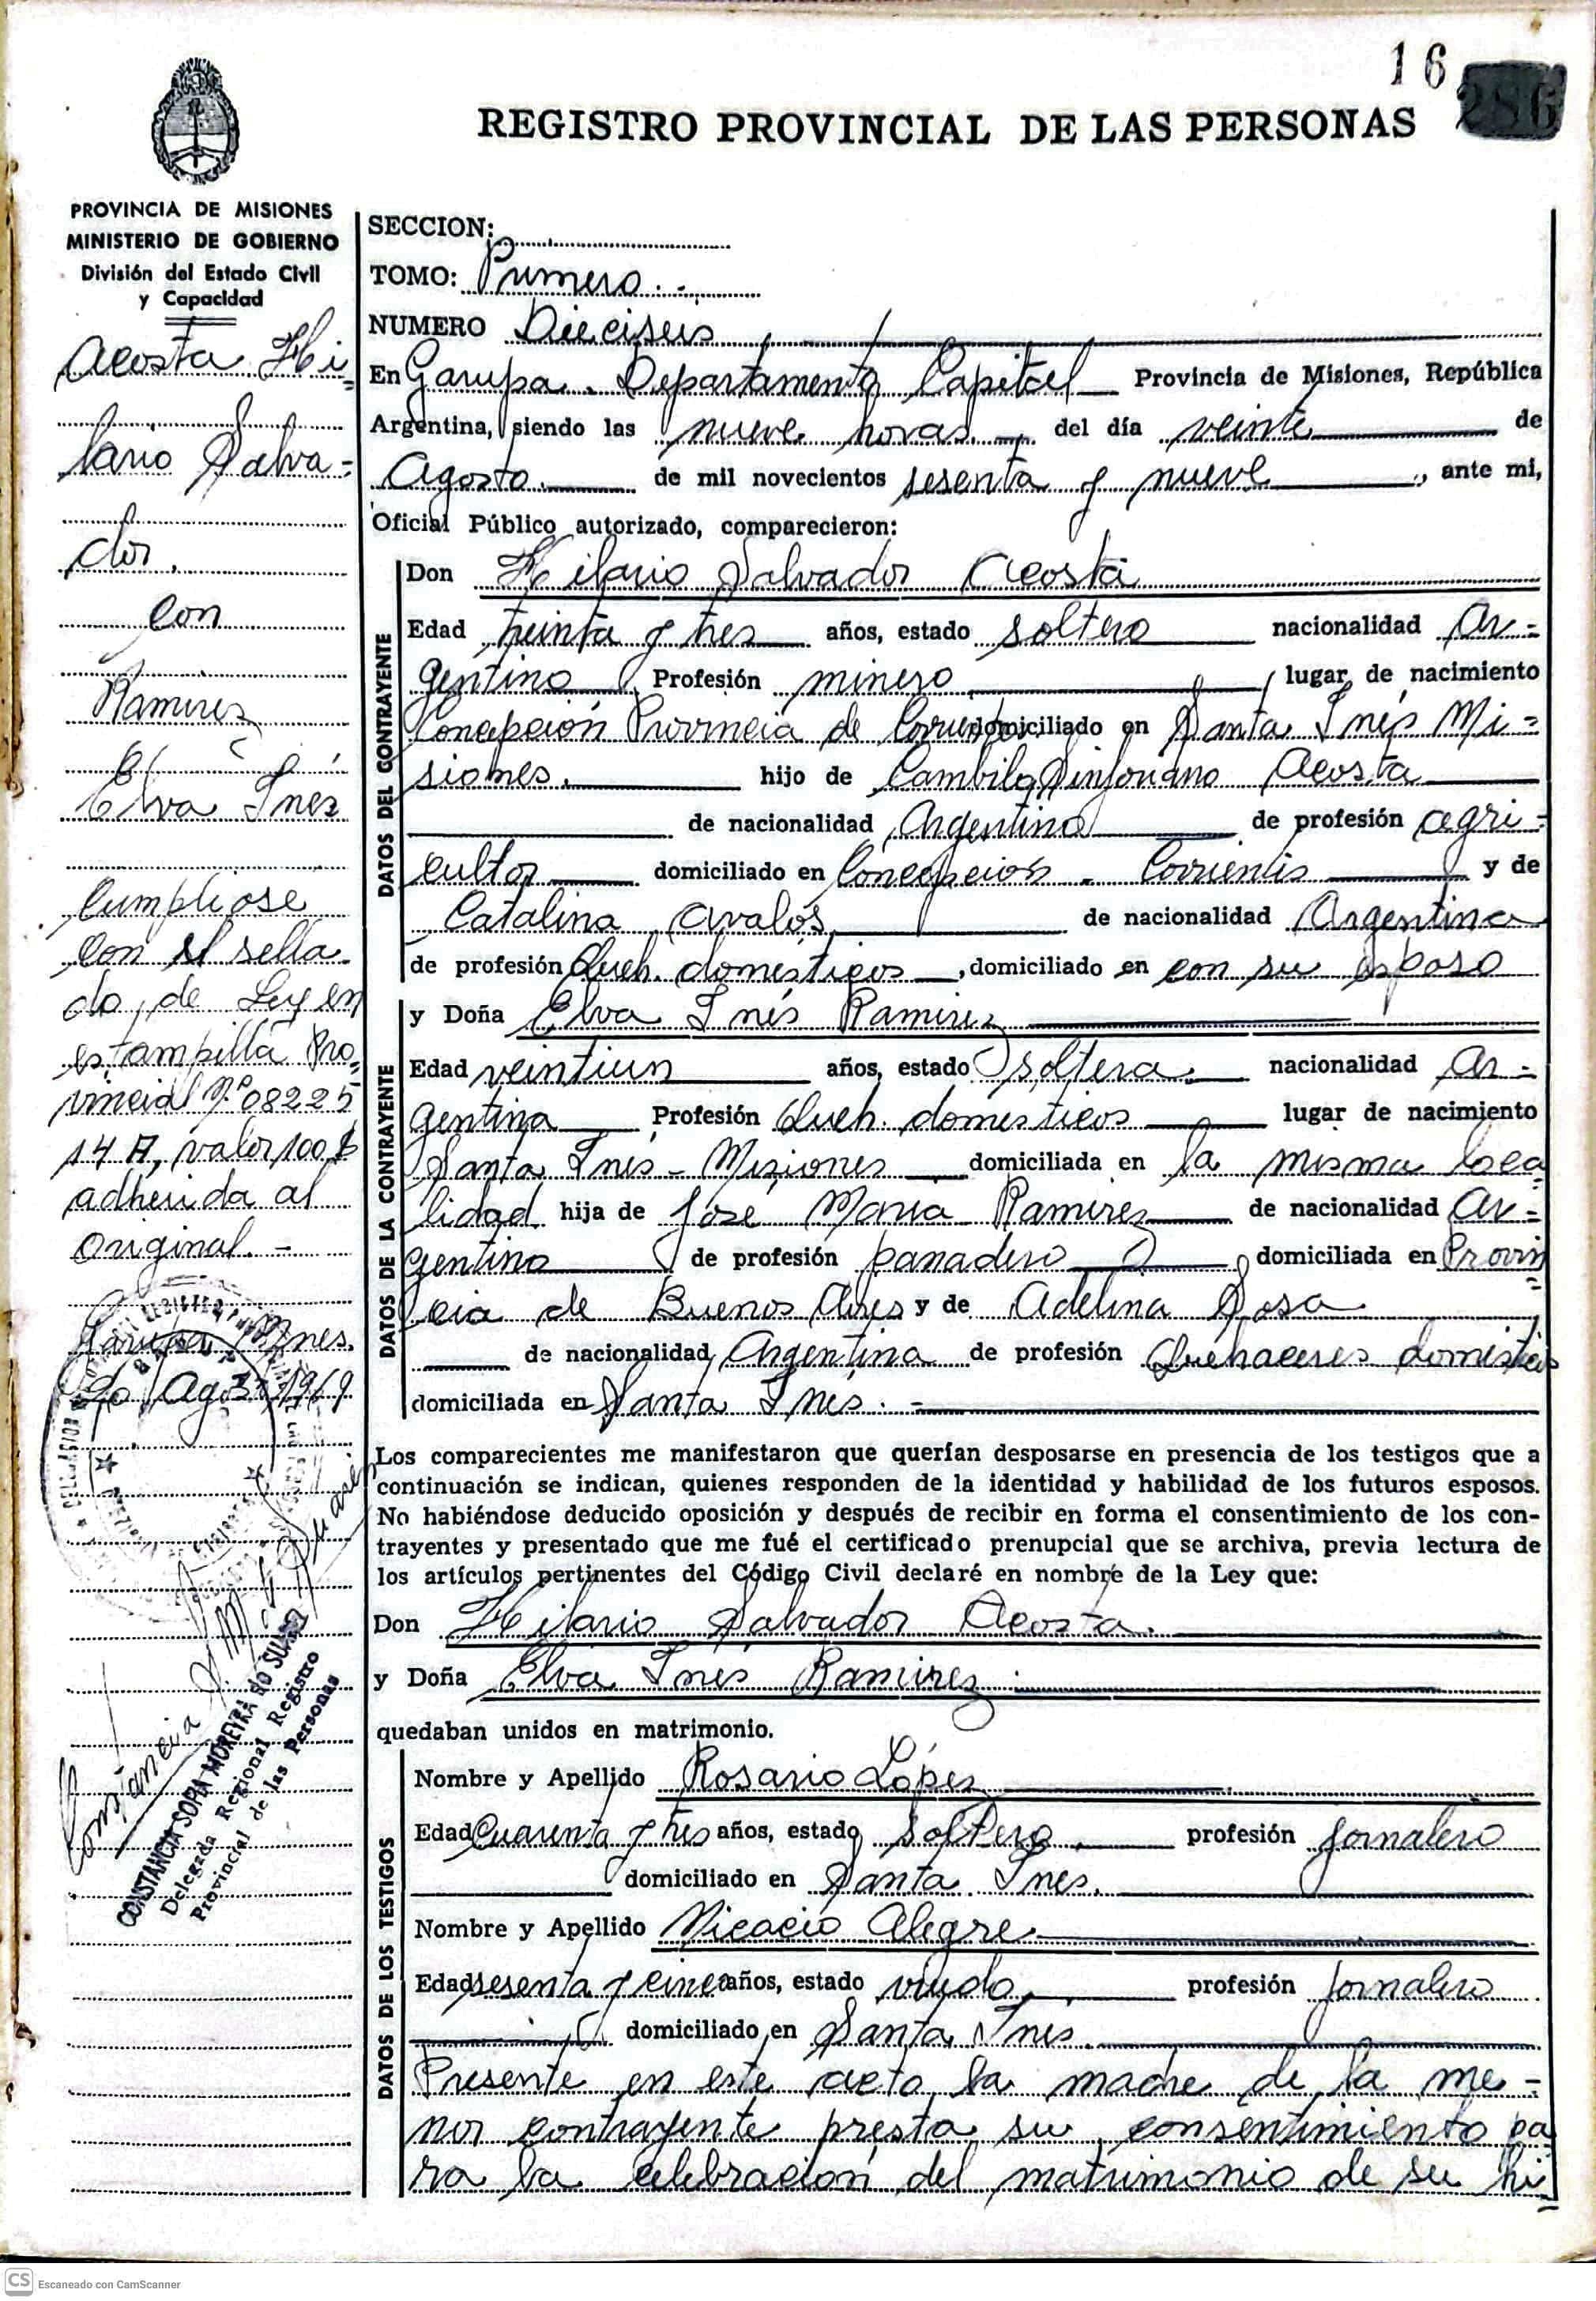 16
286
REGISTRO PROVINCIAL DE LAS PERSONAS
PROVINCIA DE MISIONES
MINISTERIO DE GOBIERNO
División del Estado Civil
y Capacidad
Acosta Hi=
lario Salva=
dor.
con
Ramirez
Elva Inés
Cumpliose
con el sella
do de Ley en
estampilla Pro=
vincial Nº 08225
14 A, valor 100 $
adherida al
original. -
Garupa Mnes.
20 Agosto 1969
CONSTANCIA SOFIA MOREYRA DO SUAREZ
Delegada Regional Registro
Provincial de las Personas
SECCION:
TOMO: Primero. -
NUMERO Dieciseis
En Garupa. Departamento Capital Provincia de Misiones, República
Argentina, siendo las nueve horas. del día veinte de
Agosto. de mil novecientos sesenta y nueve, ante mi,
Oficial Público autorizado, comparecieron:
DATOS DEL CONTRAYENTE
Don Hilario Salvador Acosta
Edad treinta y tres años, estado soltero nacionalidad Ar=
gentino Profesión minero lugar de nacimiento
Concepción Provincia de Corrientes domiciliado en Santa Inés Mi=
siones. hijo de Sinforiano Acosta
de nacionalidad Argentino de profesión agri=
cultor domiciliado en Concepcion. Corrientes y de
Catalina Avalós de nacionalidad Argentina
de profesión Queh. domésticos, domiciliado en con su esposo
DATOS DE LA CONTRAYENTE
y Doña Elva Inés Ramirez
Edad veintiun años, estado soltera. nacionalidad Ar-
gentina Profesión Queh. domesticos lugar de nacimiento
Santa Inés - Misiones domiciliada en la misma loca
lidad hija de José Maria Ramirez de nacionalidad Ar=
gentino de profesión panadero domiciliada en Provin
cia de Buenos Aires y de Adelina Sosa
de nacionalidad Argentina de profesión Quehaceres domésticos
domiciliada en Santa Inés. -
Los comparecientes me manifestaron que querían desposarse en presencia de los testigos que a
continuación se indican, quienes responden de la identidad y habilidad de los futuros esposos.
No habiéndose deducido oposición y después de recibir en forma el consentimiento de los con-
trayentes y presentado que me fué el certificado prenupcial que se archiva, previa lectura de
los artículos pertinentes del Código Civil declaré en nombre de la Ley que:
Don Hilario Salvador Acosta.
y Doña Elva Inés Ramirez
quedaban unidos en matrimonio.
DATOS DE LOS TESTIGOS
Nombre y Apellido Rosario López
Edad Cuarenta y tres años, estado soltero. profesión jornalero
domiciliado en Santa Ines.
Nombre y Apellido Nicacio Alegre
Edad sesenta y cinco años, estado viudo. profesión jornalero
domiciliado en Santa Ines.
Presente en este acto la madre de la me-
nor contrayente presta su consentimiento pa
ra la celebración del matrimonio de su hi=
CS Escaneado con CamScanner